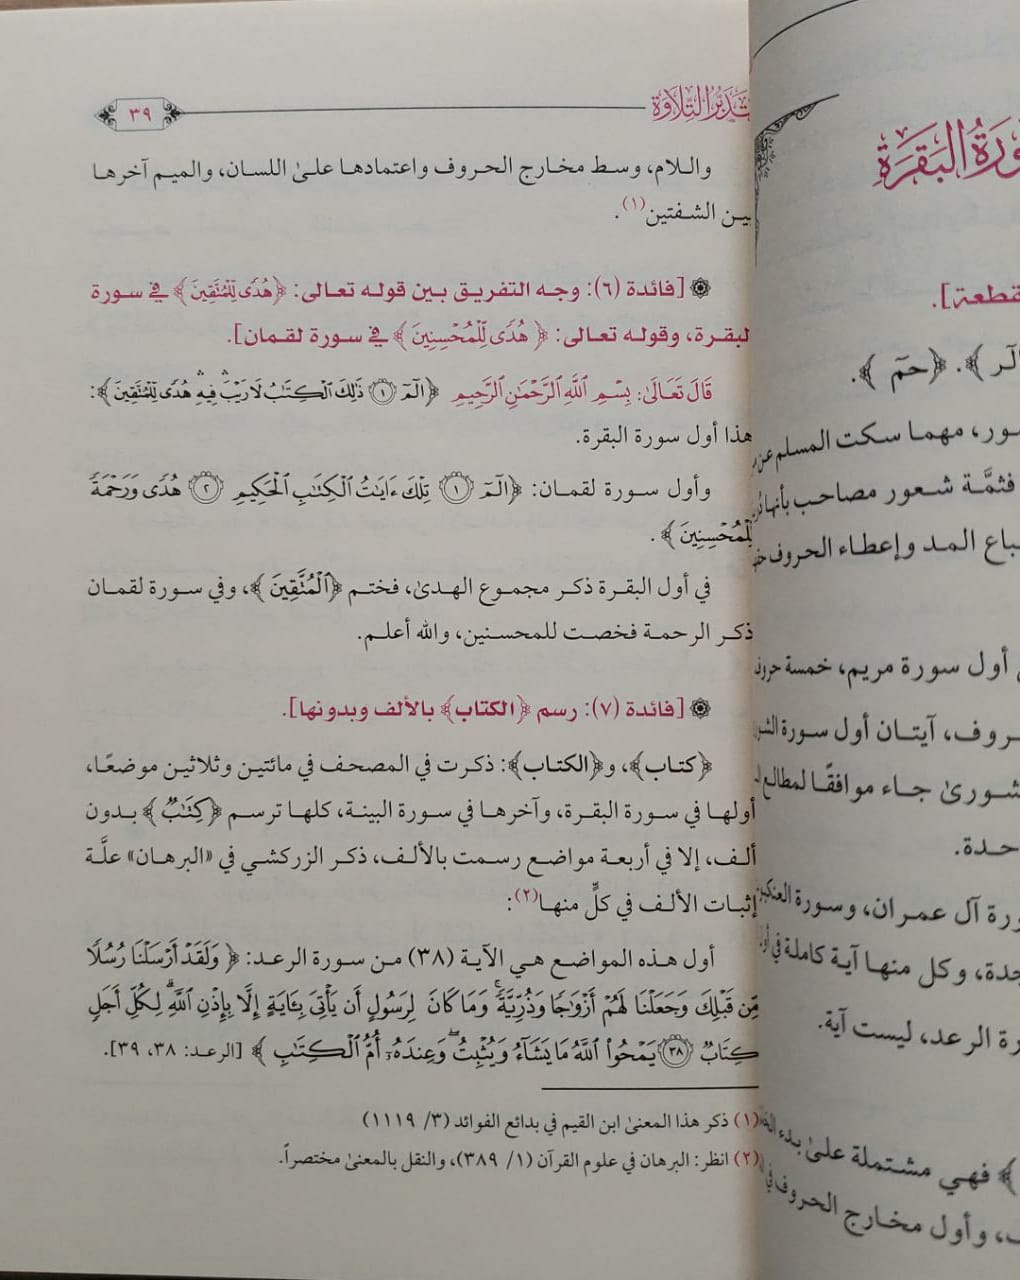 سورة البقرة
قطعة].
الر﴾. ﴿حم﴾.
سور، مهما سكت المسلم عن
فثمَّة شعور مصاحب بأنها
باع المد وإعطاء الحروف
أول سورة مريم، خمسة حروف
روف، آيتان أول سورة
شورىٰ جاء موافقًا لمطالع
حدة.
رة آل عمران، وسورة
جدة، وكل منها آية كاملة في
رة الرعد، ليست آية.
﴾ فهي مشتملة علىٰ بدء
وأول مخارج الحروف في
تدبر التلاوة
٣٩
واللام، وسط مخارج الحروف واعتمادها علىٰ اللسان، والميم آخرها
بين الشفتين(١).
[فائدة (٦): وجه التفريق بين قوله تعالى: ﴿هُدًى لِّلْمُتَّقِينَ﴾ في سورة
البقرة، وقوله تعالى: ﴿هُدًى لِّلْمُحْسِنِينَ﴾ في سورة لقمان].
قَالَ تَعَالَىٰ: بِسْمِ اللَّهِ الرَّحْمَٰنِ الرَّحِيمِ ﴿الٓمٓ ١ ذَٰلِكَ ٱلْكِتَٰبُ لَا رَيْبَ ۛ فِيهِ ۛ هُدًى لِّلْمُتَّقِينَ﴾:
هذا أول سورة البقرة.
وأول سورة لقمان: ﴿الٓمٓ ١ تِلْكَ ءَايَٰتُ ٱلْكِتَٰبِ ٱلْحَكِيمِ ٢ هُدًى وَرَحْمَةً
لِّلْمُحْسِنِينَ﴾.
في أول البقرة ذكر مجموع الهدىٰ، فختم ﴿الْمُتَّقِينَ﴾، وفي سورة لقمان
ذكر الرحمة فخصت للمحسنين، والله أعلم.
[فائدة (٧): رسم ﴿الكتاب﴾ بالألف وبدونها].
﴿كتاب﴾، و﴿الكتاب﴾: ذكرت في المصحف في مائتين وثلاثين موضعًا،
أولها في سورة البقرة، وآخرها في سورة البينة، كلها ترسم ﴿كِتَٰبٌ﴾ بدون
ألف، إلا في أربعة مواضع رسمت بالألف، ذكر الزركشي في «البرهان» علَّة
إثبات الألف في كلٍّ منها(٢):
أول هذه المواضع هي الآية (٣٨) من سورة الرعد: ﴿وَلَقَدْ أَرْسَلْنَا رُسُلًا
مِّن قَبْلِكَ وَجَعَلْنَا لَهُمْ أَزْوَٰجًا وَذُرِّيَّةً ۚ وَمَا كَانَ لِرَسُولٍ أَن يَأْتِىَ بِـَٔايَةٍ إِلَّا بِإِذْنِ ٱللَّهِ ۗ لِكُلِّ أَجَلٍ
كِتَابٌ ٣٨ يَمْحُوا۟ ٱللَّهُ مَا يَشَآءُ وَيُثْبِتُ ۖ وَعِندَهُۥٓ أُمُّ ٱلْكِتَٰبِ﴾ [الرعد: ٣٨، ٣٩].
(١) ذكر هذا المعنىٰ ابن القيم في بدائع الفوائد (٣/ ١١١٩)
(٢) انظر: البرهان في علوم القرآن (١/ ٣٨٩)، والنقل بالمعنىٰ مختصراً.